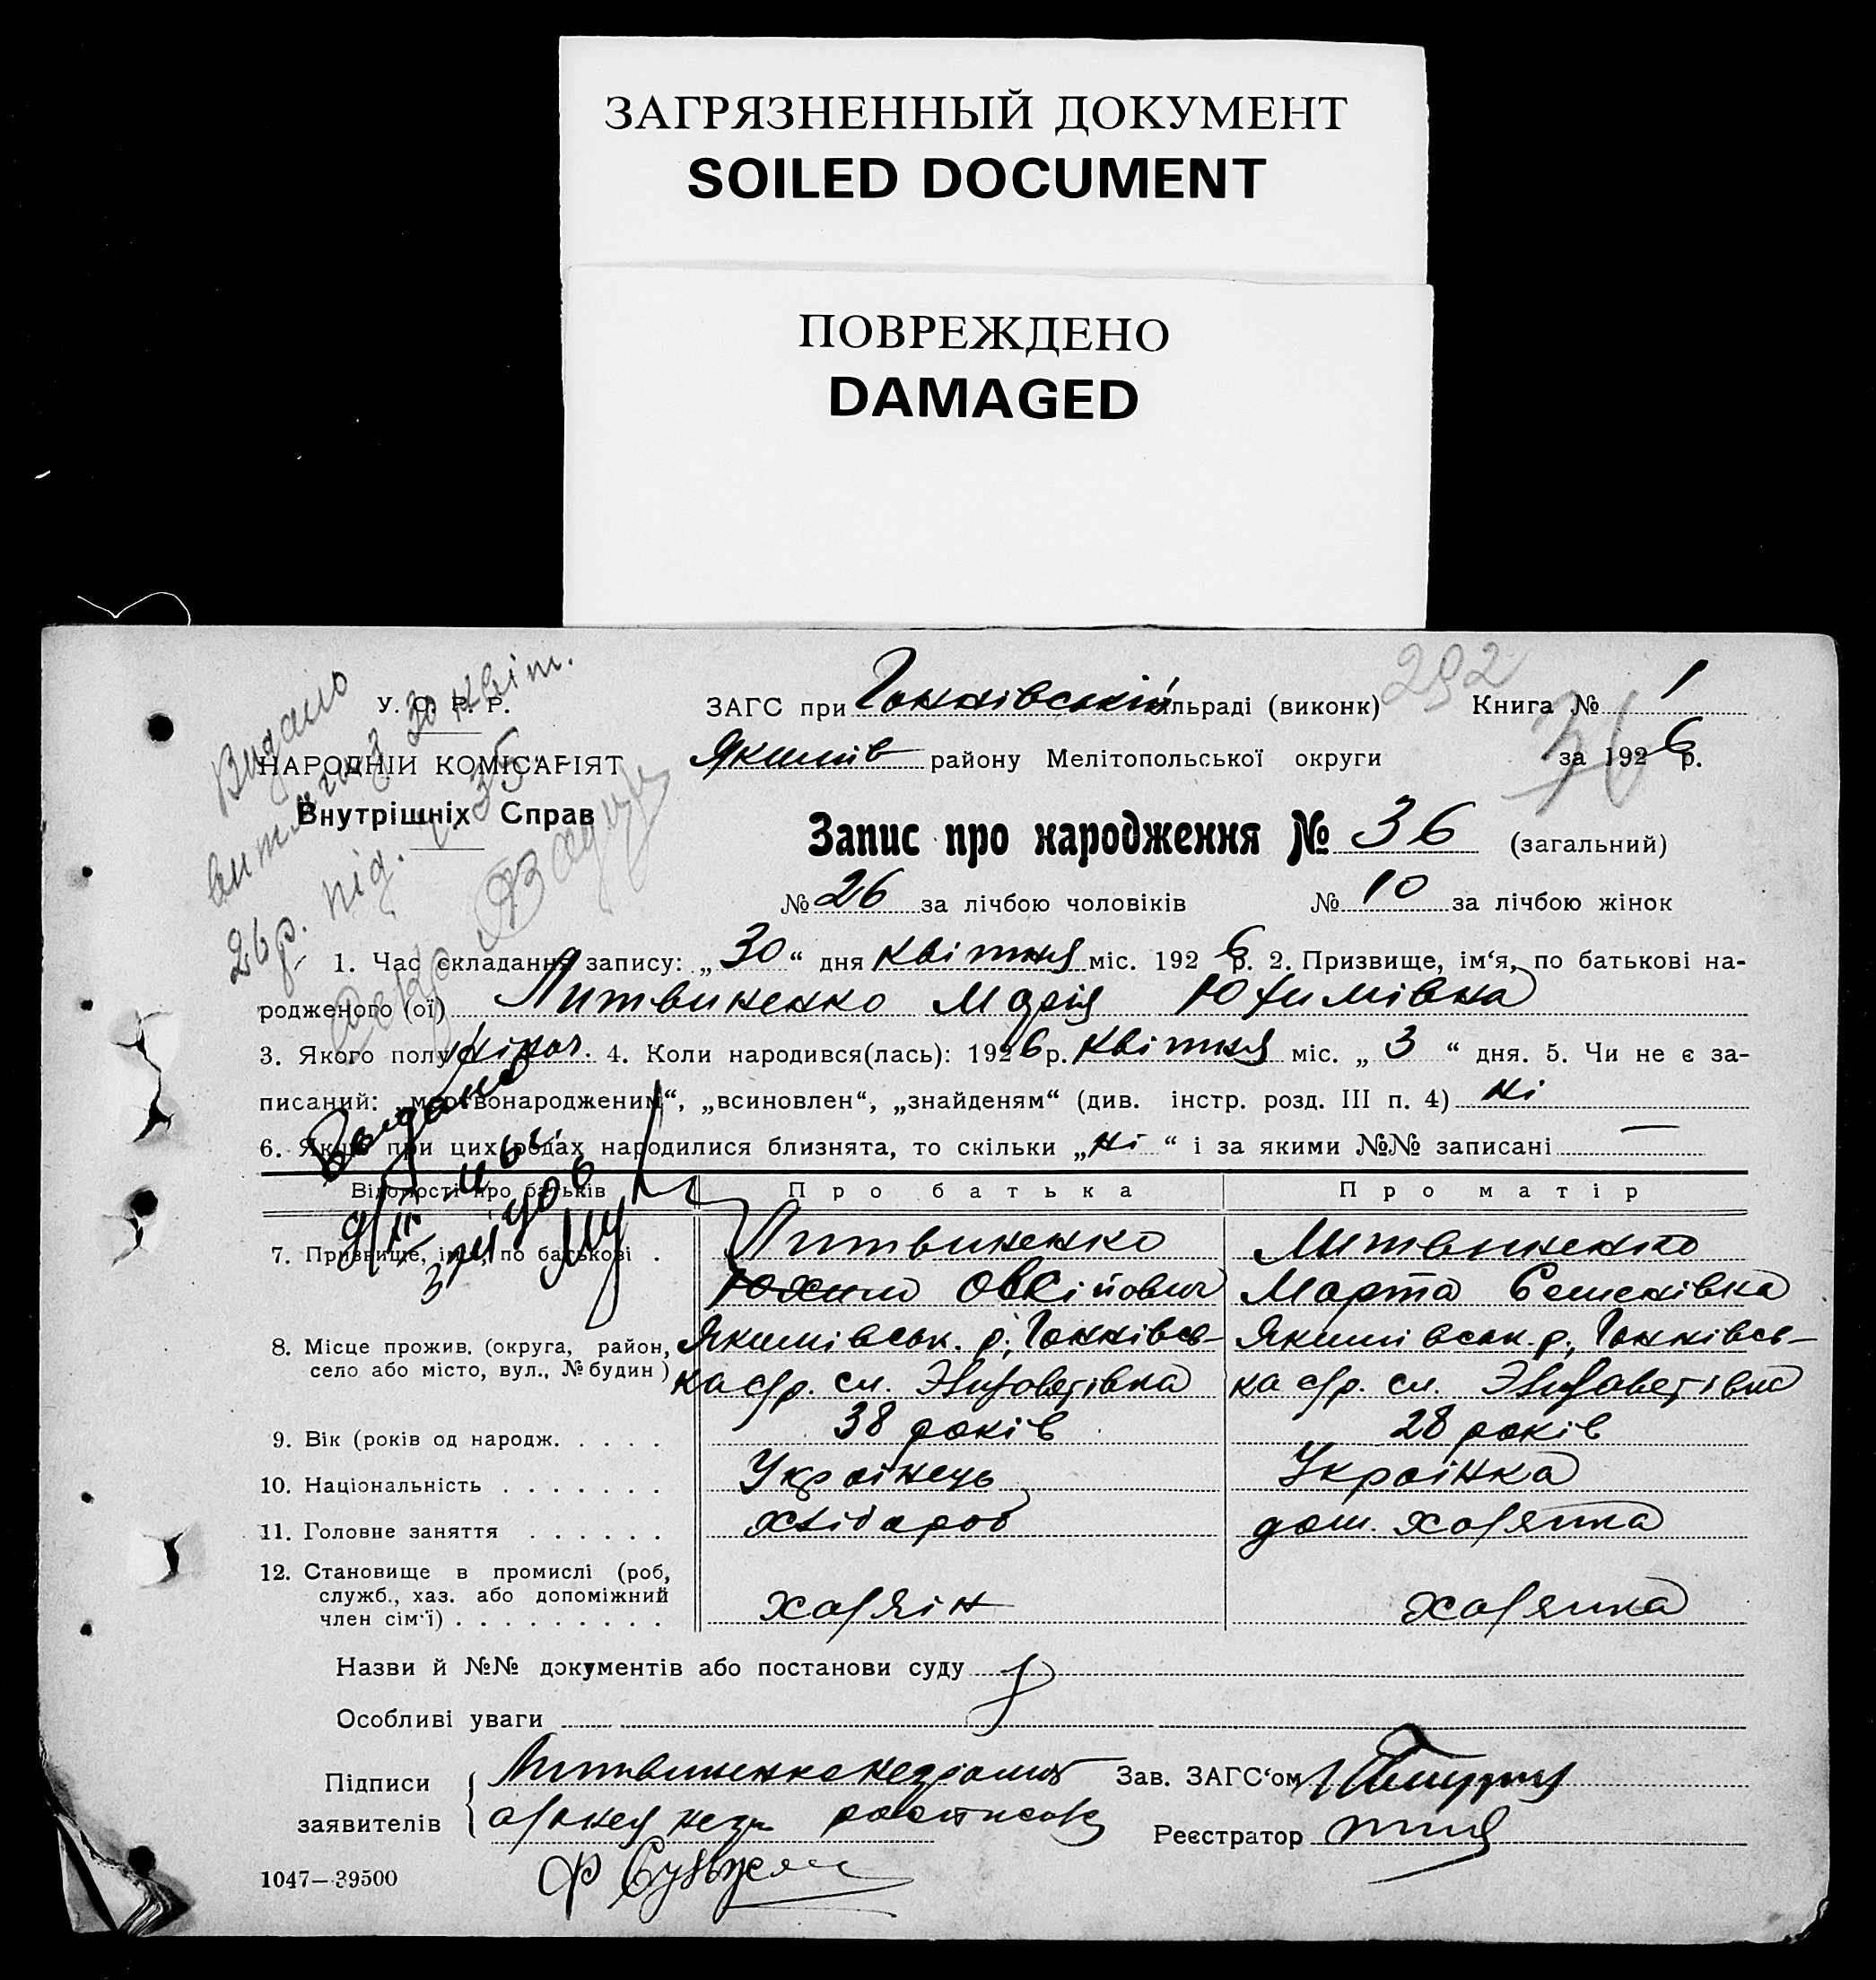 ЗАГРЯЗНЕННЫЙ ДОКУМЕНТ
SOILED DOCUMENT
ПОВРЕЖДЕНО
DAMAGED
292
Видано
витяга з 30 квіт.
26 р. під. 35
У. С. Р. Р.
НАРОДНІЙ КОМІСАРІЯТ
Внутрішніх Справ
ЗАГС при Ганнівській сільраді (виконк) Книга № 1
Якимів району Мелітопольської округи за 1926 р.
36
Запис про народження № 36 (загальний)
№ 26 за лічбою чоловіків № 10 за лічбою жінок
1. Час складання запису: „30“ дня квітня міс. 1926 р. 2. Призвище, ім‘я, по батькові на-
родженого (ої) Литвиненко Марія Юхимівна
3. Якого полу жіноч. 4. Коли народився(лась): 1926 р. квітня міс. „3“ дня. 5. Чи не є за-
писаний: „мертвонародженим“, „всиновлен“, „знайденям“ (див. інстр. розд. III п. 4) ні
6. Якщо при цих родах народилися близнята, то скільки „ні“ і за якими №№ записані —
Відомості про батьків Про батька Про матір
7. Призвище, ім‘я, по батькові . Литвиненко Литвиненко
Юхим Овсійович Марта Семенівна
8. Місце прожив. (округа, район, Якимівськ. р., Ганнівсь- Якимівськ. р., Ганнівсь-
село або місто, вул., № будин) ка с/р. сл. Элизаветівка ка с/р. сл. Элизаветівка
9. Вік (років од народж. . . . . 38 років 28 років
10. Національність . . . . . . . Українець Українка
11. Головне заняття . . . . . . Хлібороб дом. хазяйка
12. Становище в промислі (роб,
служб., хаз. або допоміжний
член сім‘ї) . . . . . . . . . хазяін хазяйка
Назви й №№ документів або постанови суду
Особливі уваги
Підписи Литвиненко Зав. ЗАГС‘ом
заявителів Реєстратор
1047—39500